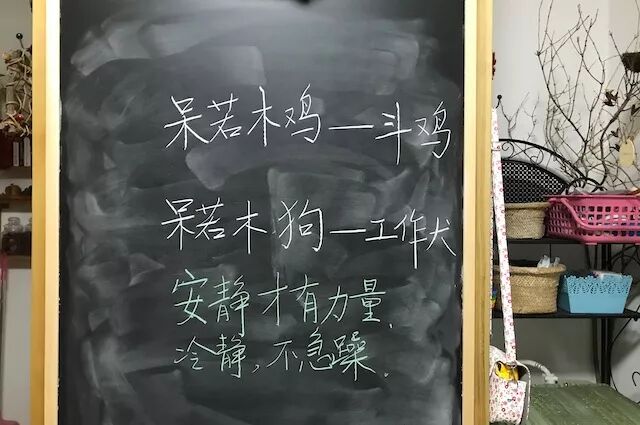 呆若木鸡—斗鸡
呆若木狗—工作犬
安静才有力量.
冷静,不急躁.